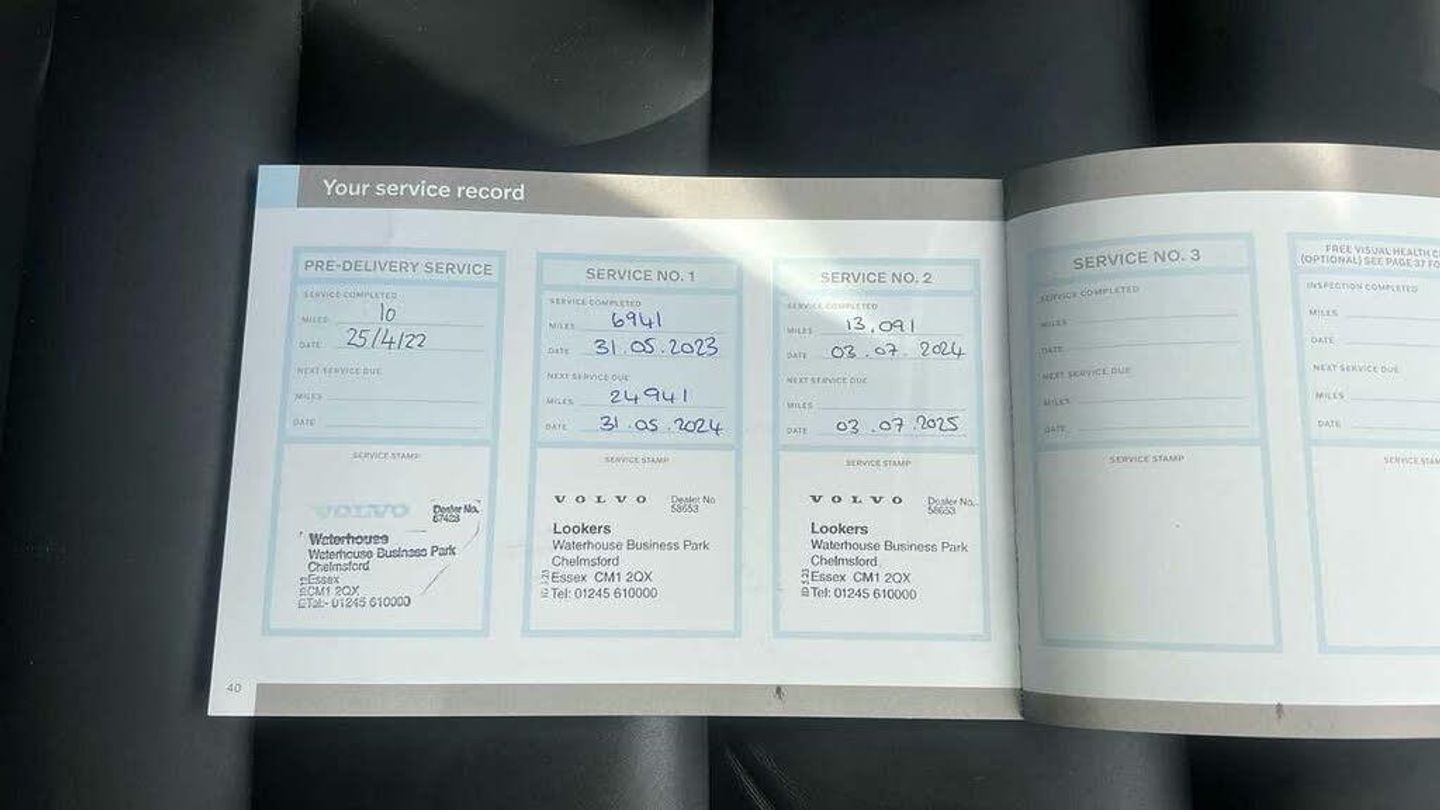 Your service record
PRE-DELIVERY SERVICE
SERVICE COMPLETED
MILES 10
DATE 25/4/22
NEXT SERVICE DUE
MILES
DATE
SERVICE STAMP
VOLVO
Dealer No.
67423
Waterhouse
Waterhouse Business Park
Chelmsford
Essex
CM1 2QX
Tel:- 01245 610000
SERVICE NO. 1
SERVICE COMPLETED
MILES 6941
DATE 31.05.2023
NEXT SERVICE DUE
MILES 24941
DATE 31.05.2024
SERVICE STAMP
VOLVO
Dealer No
58653
Lookers
Waterhouse Business Park
Chelmsford
Essex CM1 2QX
Tel: 01245 610000
SERVICE NO. 2
SERVICE COMPLETED
MILES 13.091
DATE 03.07.2024
NEXT SERVICE DUE
MILES
DATE 03.07.2025
SERVICE STAMP
VOLVO
Dealer No.
58653
Lookers
Waterhouse Business Park
Chelmsford
Essex CM1 2QX
Tel: 01245 610000
40
SERVICE NO. 3
SERVICE COMPLETED
MILES
DATE
NEXT SERVICE DUE
MILES
DATE
SERVICE STAMP
FREE VISUAL HEALTH C
(OPTIONAL) SEE PAGE 37 FO
INSPECTION COMPLETED
MILES
DATE
NEXT SERVICE DUE
MILES
DATE
SERVICE STAM